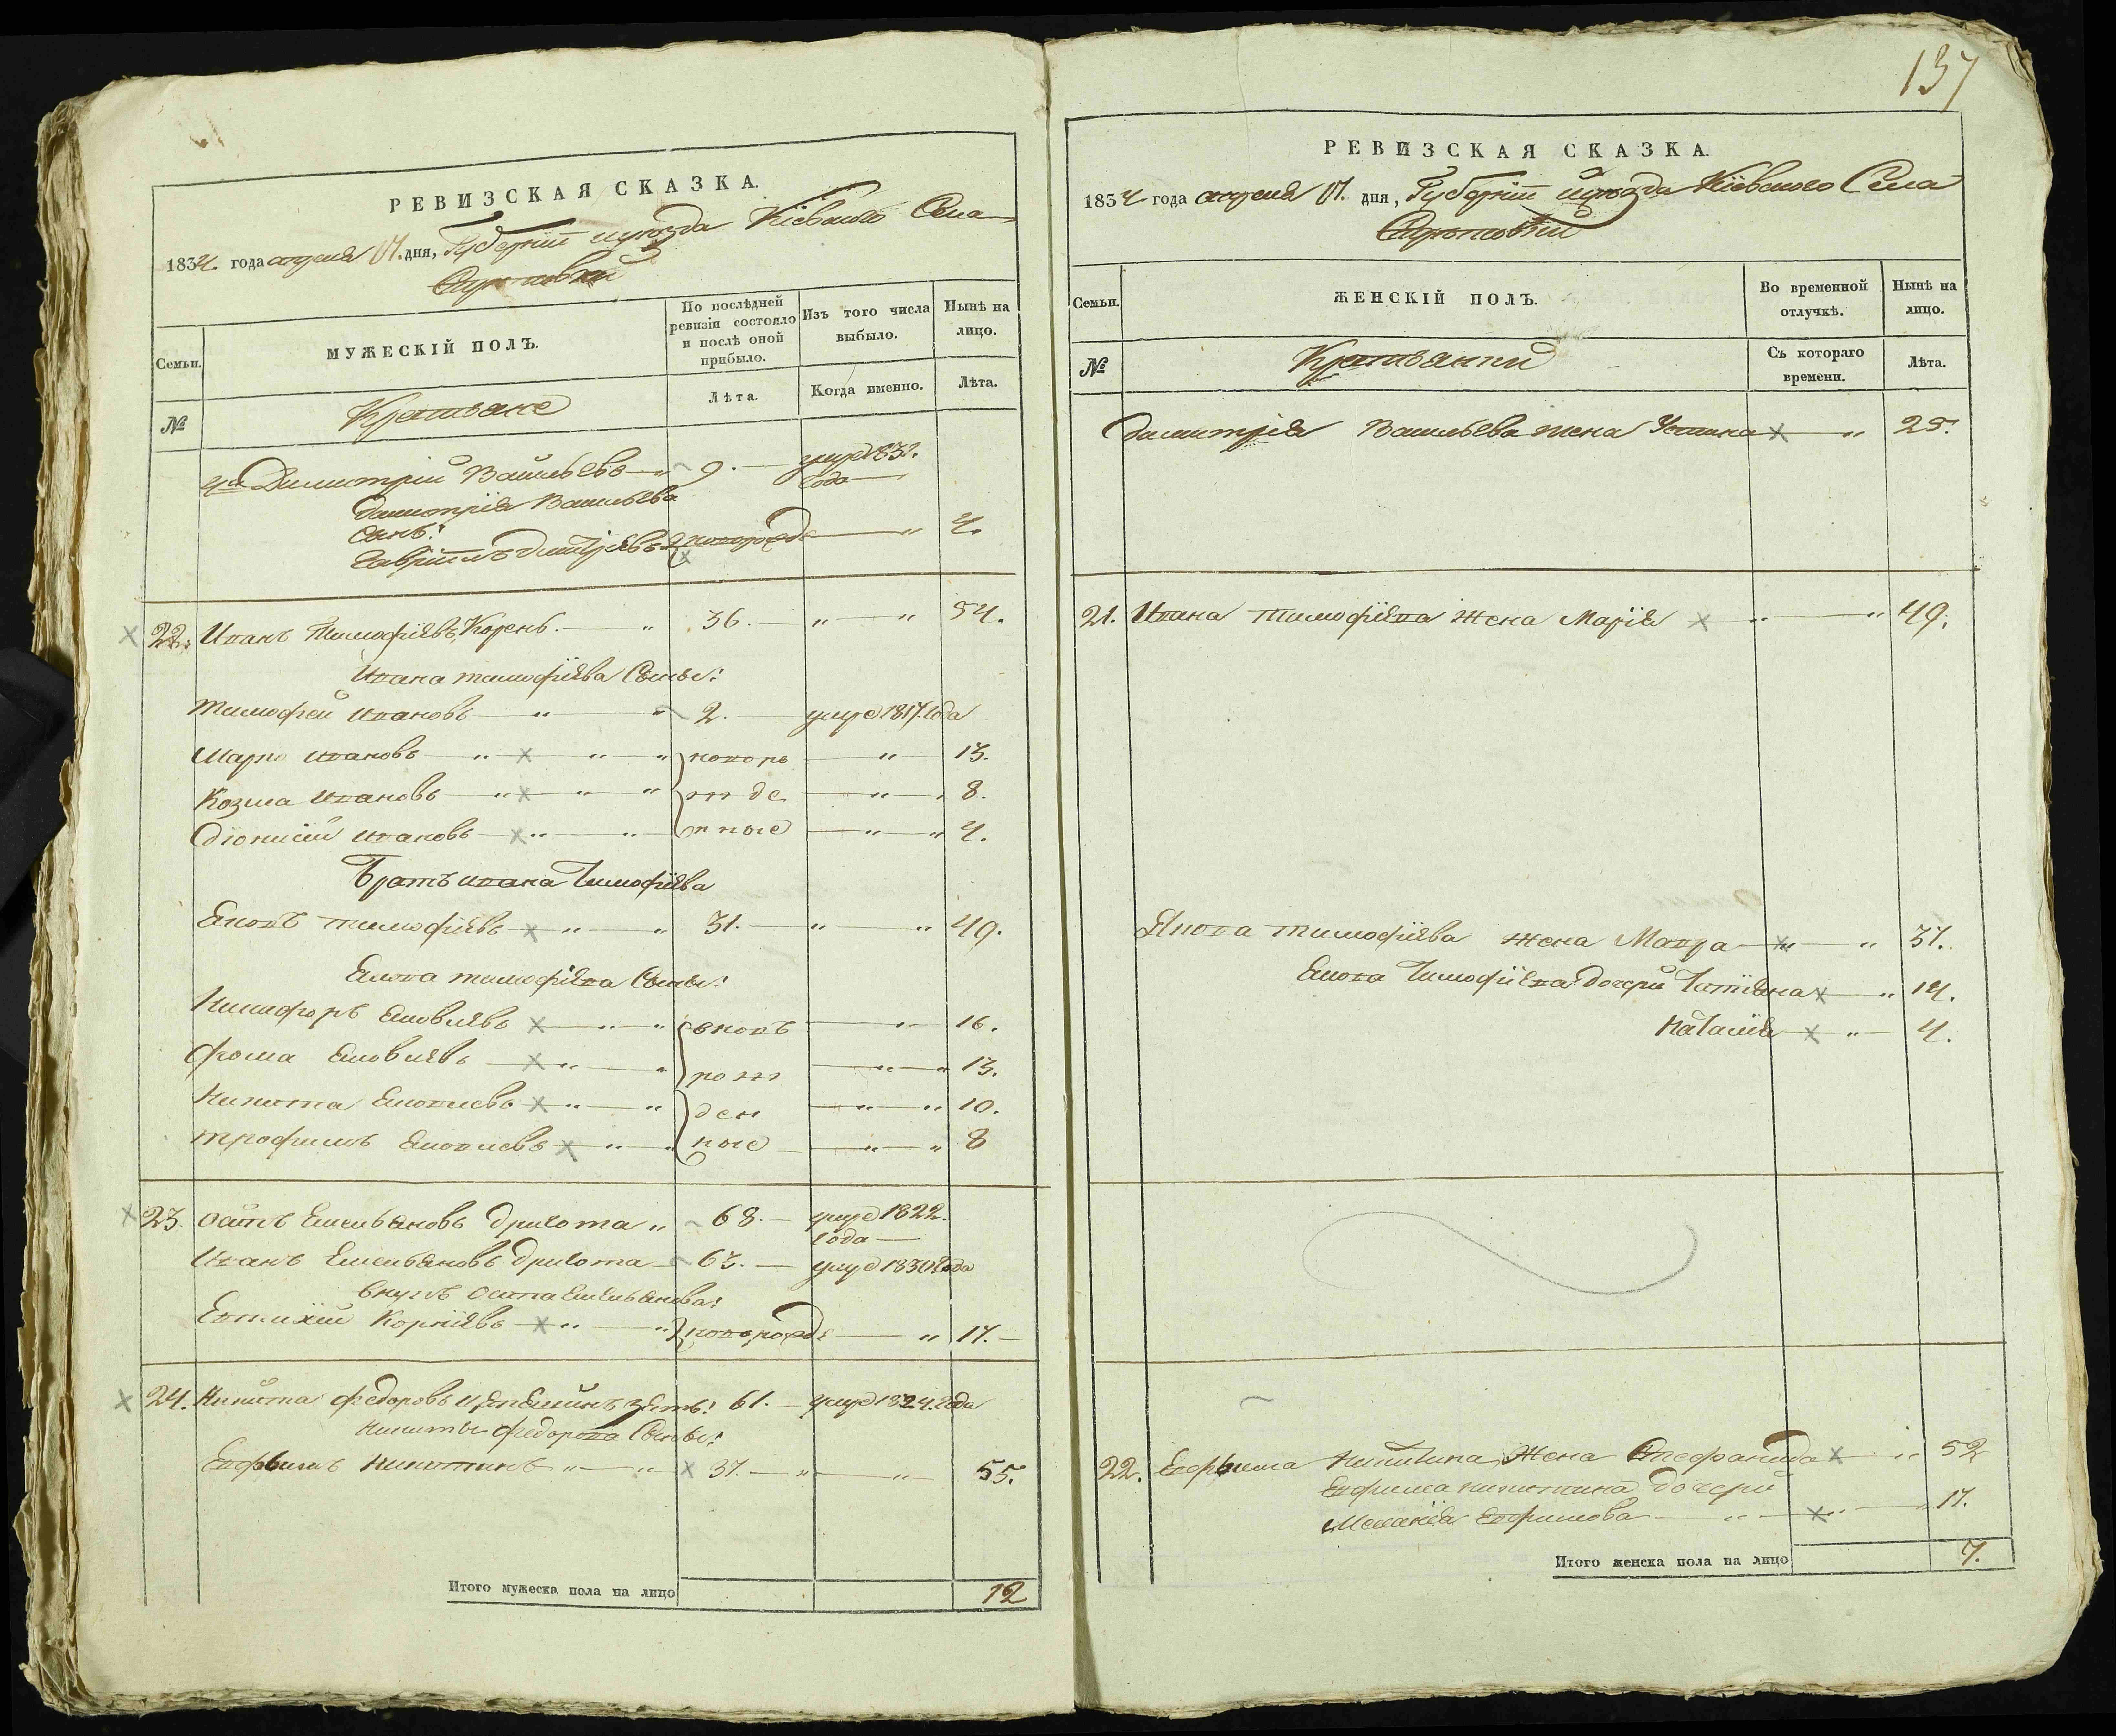 137
РЕВИЗСКАЯ СКАЗКА.
1834. года апреля дня, Губернии и уезда Кіевского Села
Семьи.
МУЖЕСКІЙ ПОЛЪ.
По послѣдней ревизіи состояло и послѣ оной прибыло.
Изъ того числа выбыло.
Нынѣ на лицо.
№
Лѣта.
Когда именно.
Лѣта.
Димитрій Васильевъ 9. умре 183 года
Димитрія Васильева
Сынъ:
Гавріилъ новорожд 4.
22. Иванъ Тимофіевъ Корень. 36. 54.
Ивана тимофіева Сыны:
Тимофей Ивановъ 2. умре 1817. года
Марко Ивановъ новоро 13.
Козма Ивановъ ж де 8.
Діонисій Ивановъ нные 4.
Братъ Ивана Тимофіева
Яковъ тимофіевъ 31. 49.
Якова тимофіева Сыны:
Никифоръ Яковлевъ 16.
Фома Яковлевъ 13.
Никита Яковлевъ ден 10.
Трофимъ Яковлевъ ные 8
23. Осипъ Емельяновъ Дригота 68. умре 1822. года
Иванъ Емельяновъ Дригота 63. умре 1830 года
внукъ Осипа Емельянова:
Евтихій Корніевъ новорожд 17.
24. Никита Федоровъ зять: 61. умре 1824. года
Никиты Федорова Сыны:
Евфимъ Никитинъ 37. 55.
Итого мужеска пола на лицо 12
РЕВИЗСКАЯ СКАЗКА.
1834 года апреля дня, Губерніи уезда Кіевского Села
Семьи.
ЖЕНСКІЙ ПОЛЪ.
Во временной отлучкѣ.
Нынѣ на лицо.
№
Съ котораго времени.
Лѣта.
Димитрія Васильева жена 25.
21. Ивана Тимофіева Жена Марія 49.
Якова тимофіева жена Мавра 37.
Якова Тимофіева дочери Татіяна 14.
Наталія 4.
22. Евфима Никитина Жена 52
Евфима Никитина дочери
Меланія Евфимова 17.
Итого женска пола на лицо 7.